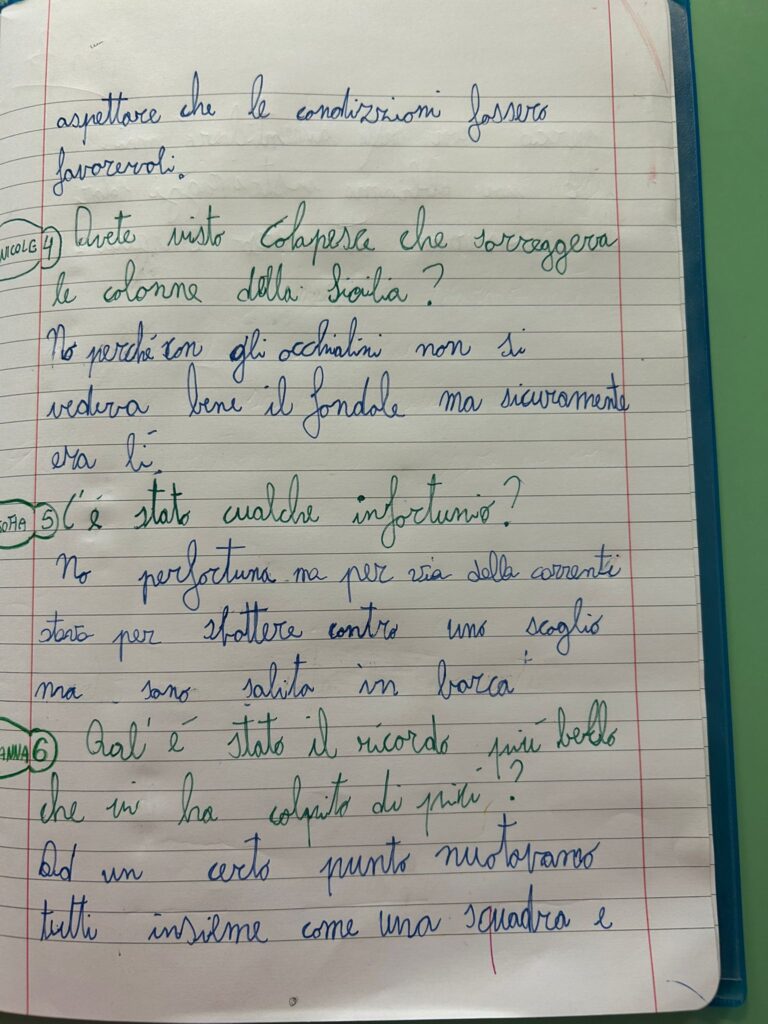 aspettare che le condizzioni fossero
favorevoli.
NICOLE 4 Avete visto Colapesce che sorreggeva
le colonne della Sicilia?
No perché con gli occhialini non si
vedeva bene il fondale ma sicuramente
era lí.
SOFIA 5 C'é stato cualche infortunio?
No perfortuna ma per via della correnti
stava per sbattere contro uno scoglio
ma sono salita in barca
ANNA 6 Qual'é stato il ricordo piú bello
che vi ha colpito di piú?
Ad un certo punto nuotavamo
tutti insieme come una squadra e